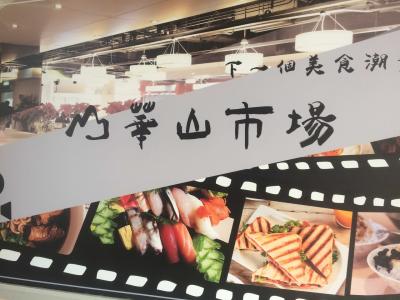 下一個美食潮
華山市場